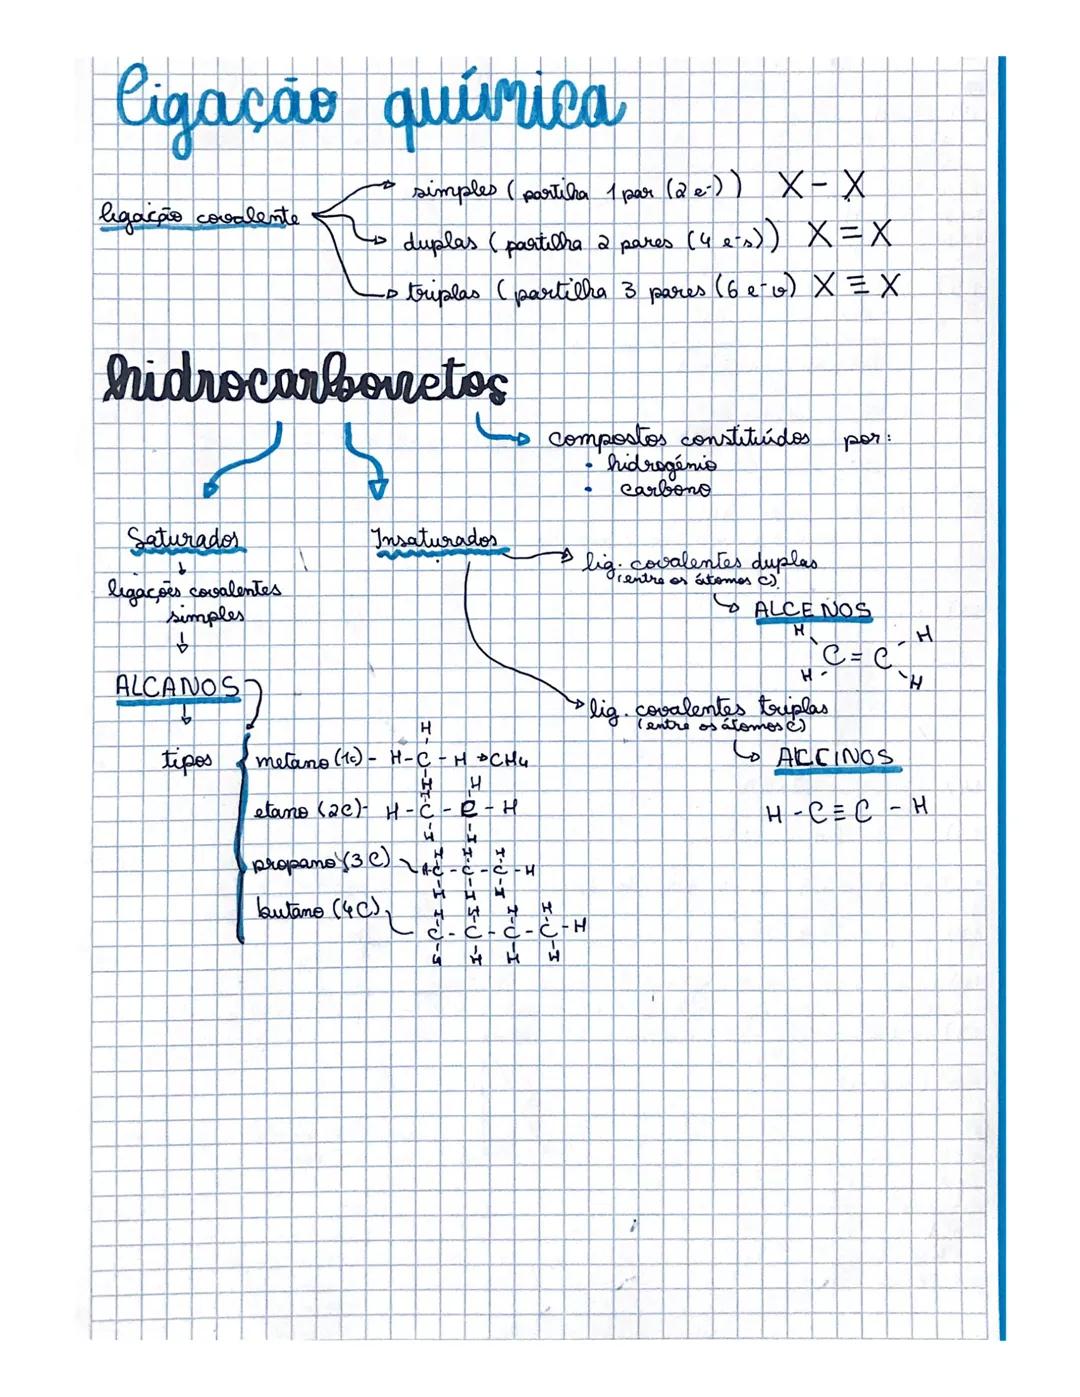 ligação química
ligação covalente
simples (partilha 1 par (2 e-)) X - X
duplas (partilha 2 pares (4 e-s)) X = X
triplas (partilha 3 pares (6 e-s) X ≡ X
hidrocarbonetos
compostos constituídos por:
• hidrogénio
• carbono
Saturados
ligações covalentes
simples
ALCANOS
tipos
Insaturados
lig. covalentes duplas
(entre os átomos C)
ALCENOS
H H
C = C
H H
lig. covalentes triplas
(entre os átomos C)
ALCINOS
H - C ≡ C - H
H
metano (1C) - H - C - H → CH4
H
H H
etano (2C) - H - C - C - H
H H
H H H
propano (3C) H C - C - C - H
H H H
butano (4C) H H H H
C - C - C - C - H
H H H H